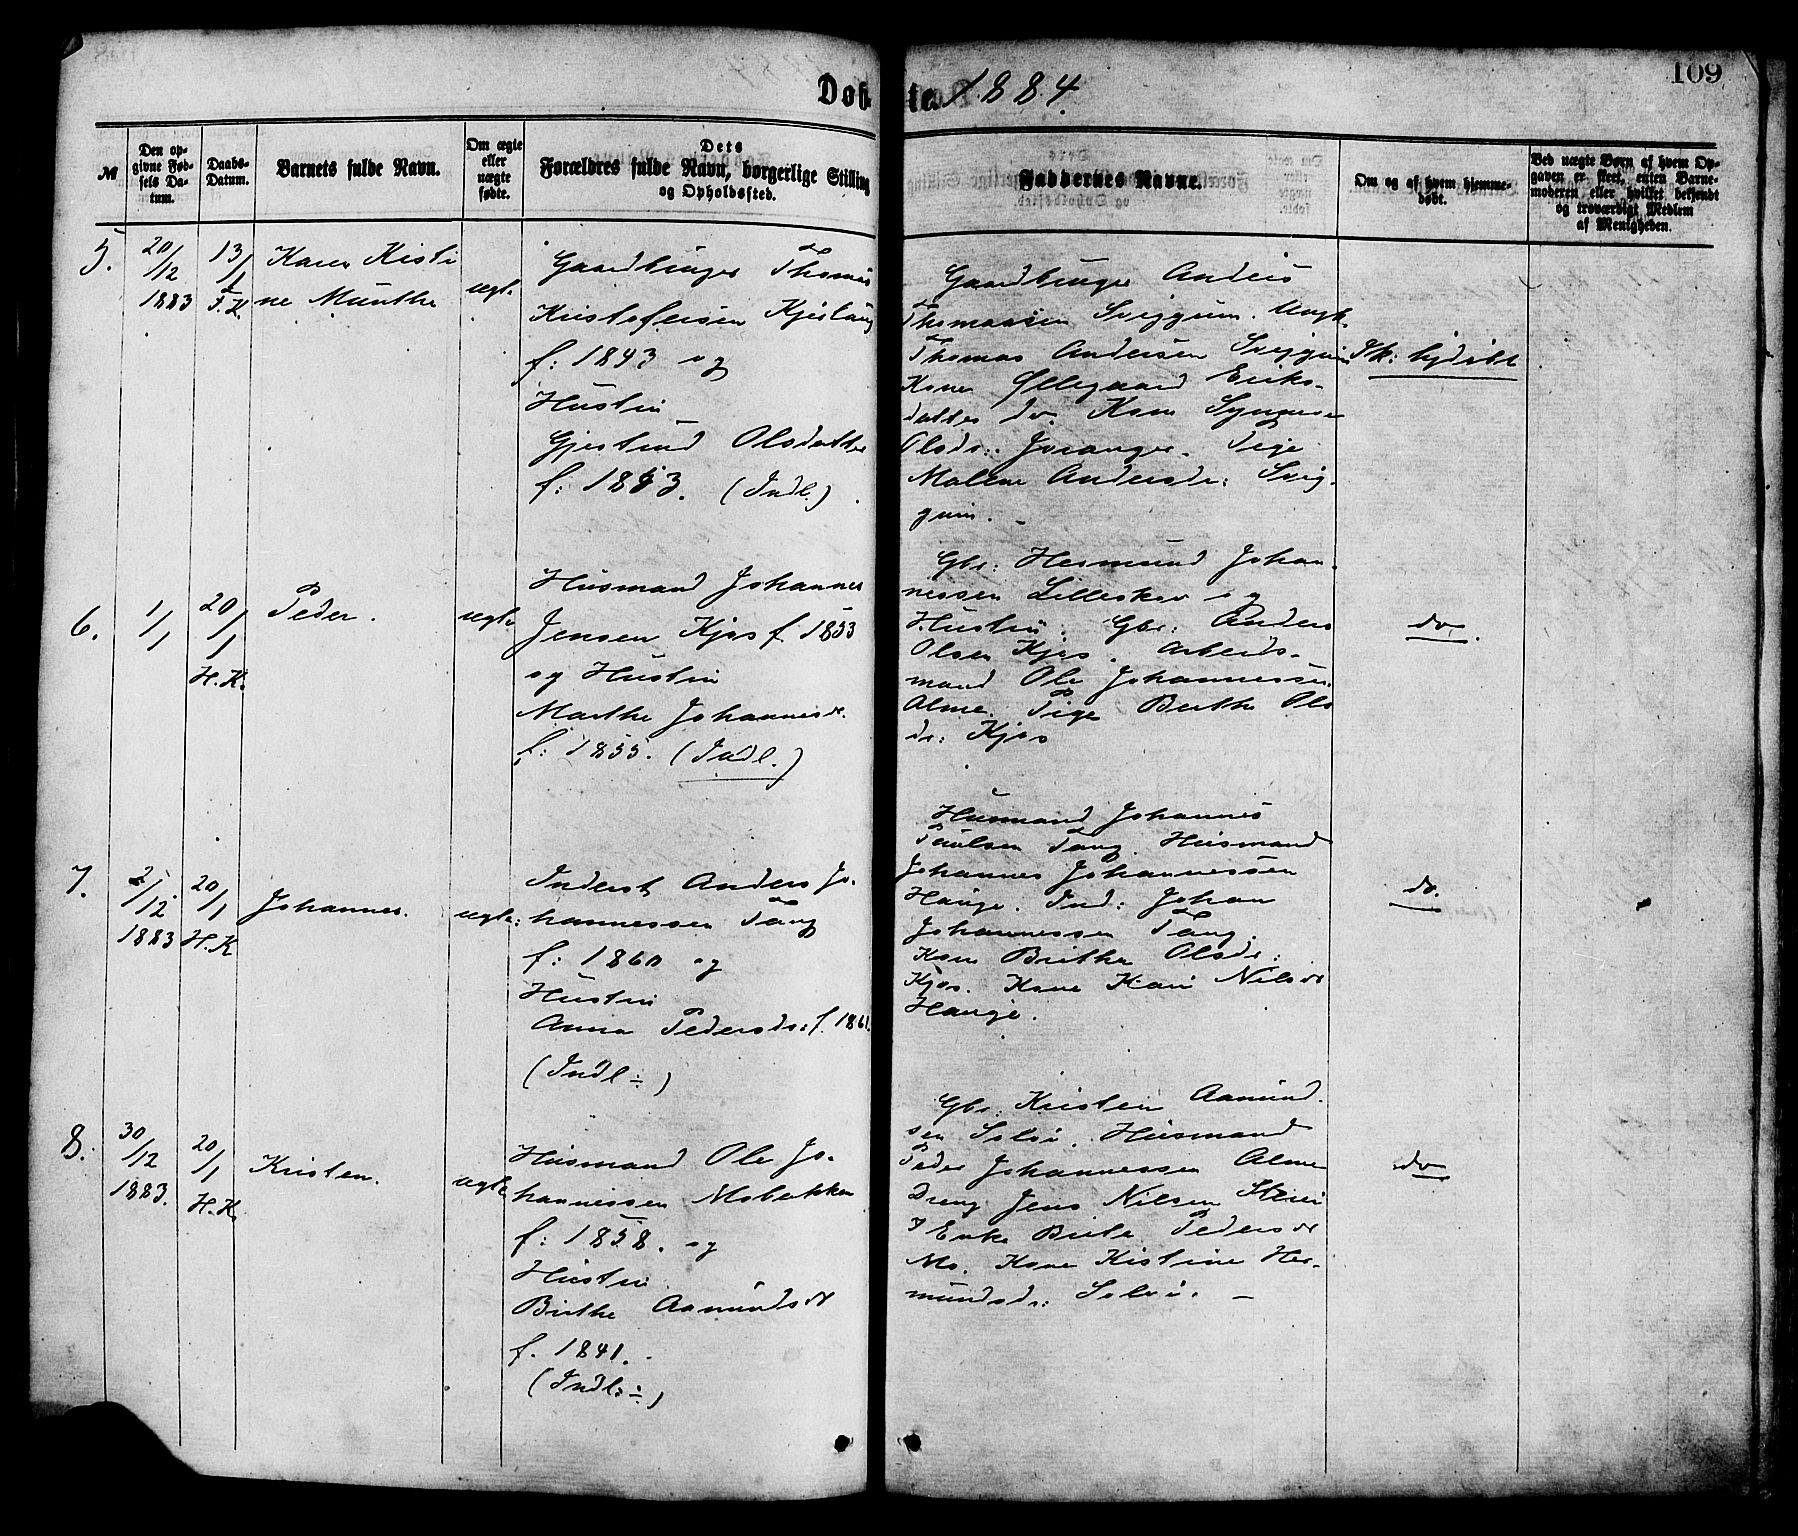 Døb-te. 1884.
109
№
Den opgivne Fødsels Datum.
Daabs-Datum.
Barnets fulde Navn.
Om ægte eller uægte fødte.
Dets Forældres fulde Navn, borgerlige Stilling og Opholdssted.
Faddernes Navne.
Om og af hvem hjemmedøbt.
Ved uægte Børn af hvem Opgaven er skeet, enten Barnemoderen eller hvilket bekjendt og troværdigt Medlem af Menigheden.
5.
20/12 1883
13/1
Karen Kisti
ne Munthe
ægt.
Gaardbruger Thomas
Kristofersen Kjerlaug
f: 1843 og
Hustru
Gjertrud Olsdatter
f: 1853. (Indl.)
Gaardbruger Anders
Thomassen Sviggum. Ungk.
Thomas Andersen Sviggum
Kone Øllegaard Eriks-
datter do Kone Synneve
Olsdr: Joranger. Pige
Malene Andersdr: Svig-
gum.
hjdøbt
6.
1/1
20/1
H.K.
Peder.
ægte
Husmand Johannes
Jensen Kjos f. 1853
og Hustru
Marthe Johannesdr.
f: 1855. (Indl.)
Gbr: Hermund Johan-
nessen Lillesker og
Hustru. Gbr: Anders
Olsen Kjos. Arbeids-
mand Ole Johannessen
Alme. Pige Berthe Ols
dr: Kjos
do
7.
2/12 1883
20/1
H.K
Johannes.
ægte:
Inderst Anders Jo-
hannessen Tang
f: 1860 og
Hustru
Anna Pedersdr: f. 1861.
(Indl ÷)
Husmand Johannes
Paulsen Tang. Husmand
Johannes Johannessen
Hauge. Ind: Johan
Johannessen Tang.
Kone Brithe Olsdr:
Kjos. Kone Kari Nilsdr
Hauge.
do.
8.
30/12
1883.
20/1
H.K.
Kristen.
ægte
Husmand Ole Jo-
hannessen Mobakken
f: 1858. og
Hustru
Birthe Aamundsdr
f. 1841.
(Indl: ÷)
Gbr: Kristen Aamund-
sen Solvi. Husmand
Peder Johannessen Alme
Dreng Jens Nilsen
Enke Birte Pedersdr
Mo. Kone Kistine Her-
mundsdr: Solvi. —
do